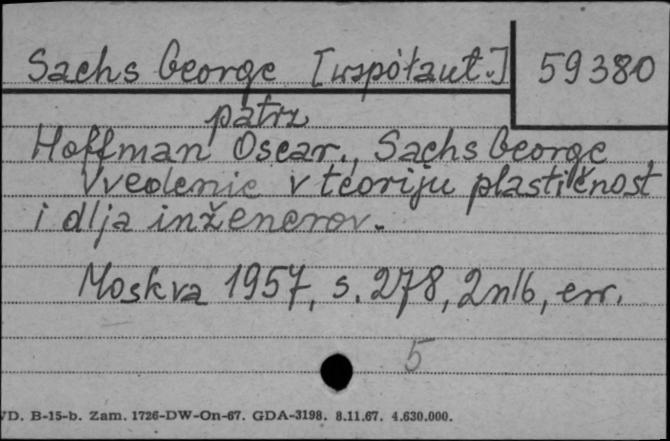 Sachs George [współaut.] 59380
patrz
Hoffman Oscar., Sachs George
Vvedenie v teoriju plastičnosti
i dlja inženerov.
Moskva 1957, s. 278, 2nlb, err.
5
VD. B-15-b. Zam. 1726-DW-On-67. GDA-3198. 8.11.67. 4.630.000.